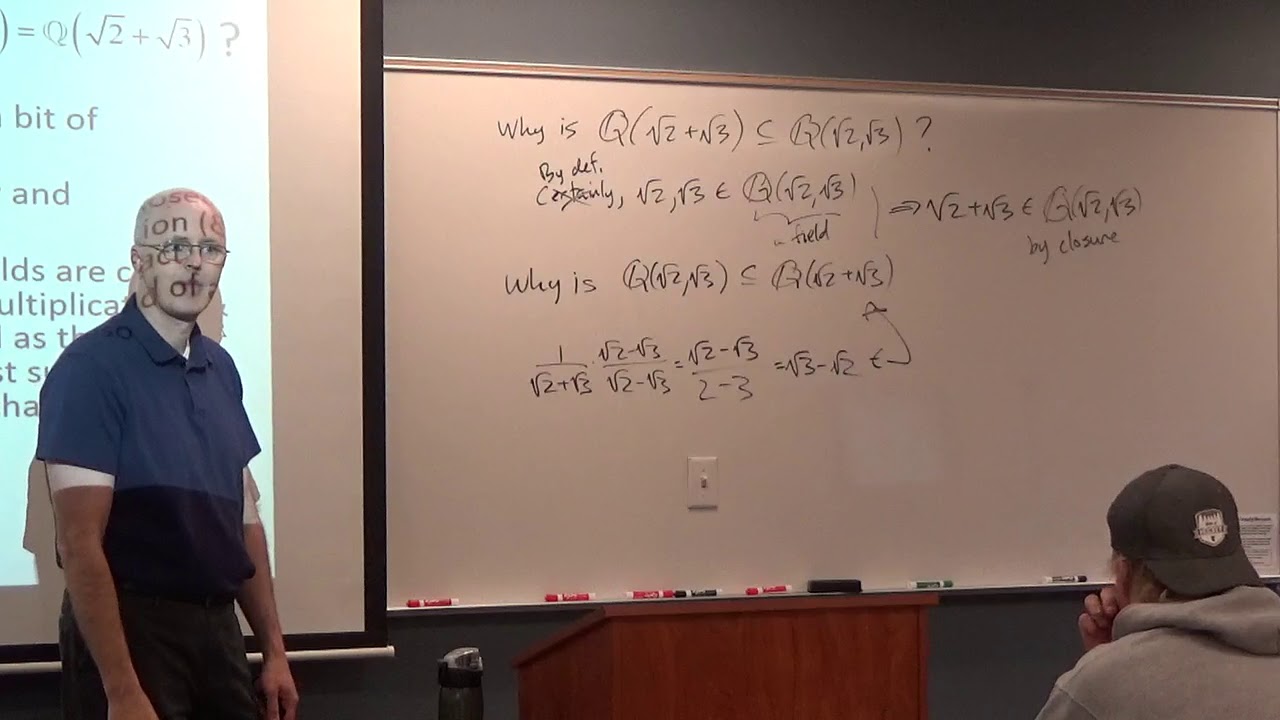 ) = ℚ(√2 + √3) ?
bit of
and
ion (
lds are c
ultiplica
d as th
ha
Why is ℚ(√2+√3) ⊆ ℚ(√2,√3) ?
By def.
Certainly, √2,√3 ∈ ℚ(√2,√3) ⟹ √2+√3 ∈ ℚ(√2,√3)
field
by closure
Why is ℚ(√2,√3) ⊆ ℚ(√2+√3)
1/(√2+√3) · (√2-√3)/(√2-√3) = (√2-√3)/(2-3) = √3-√2 ∈